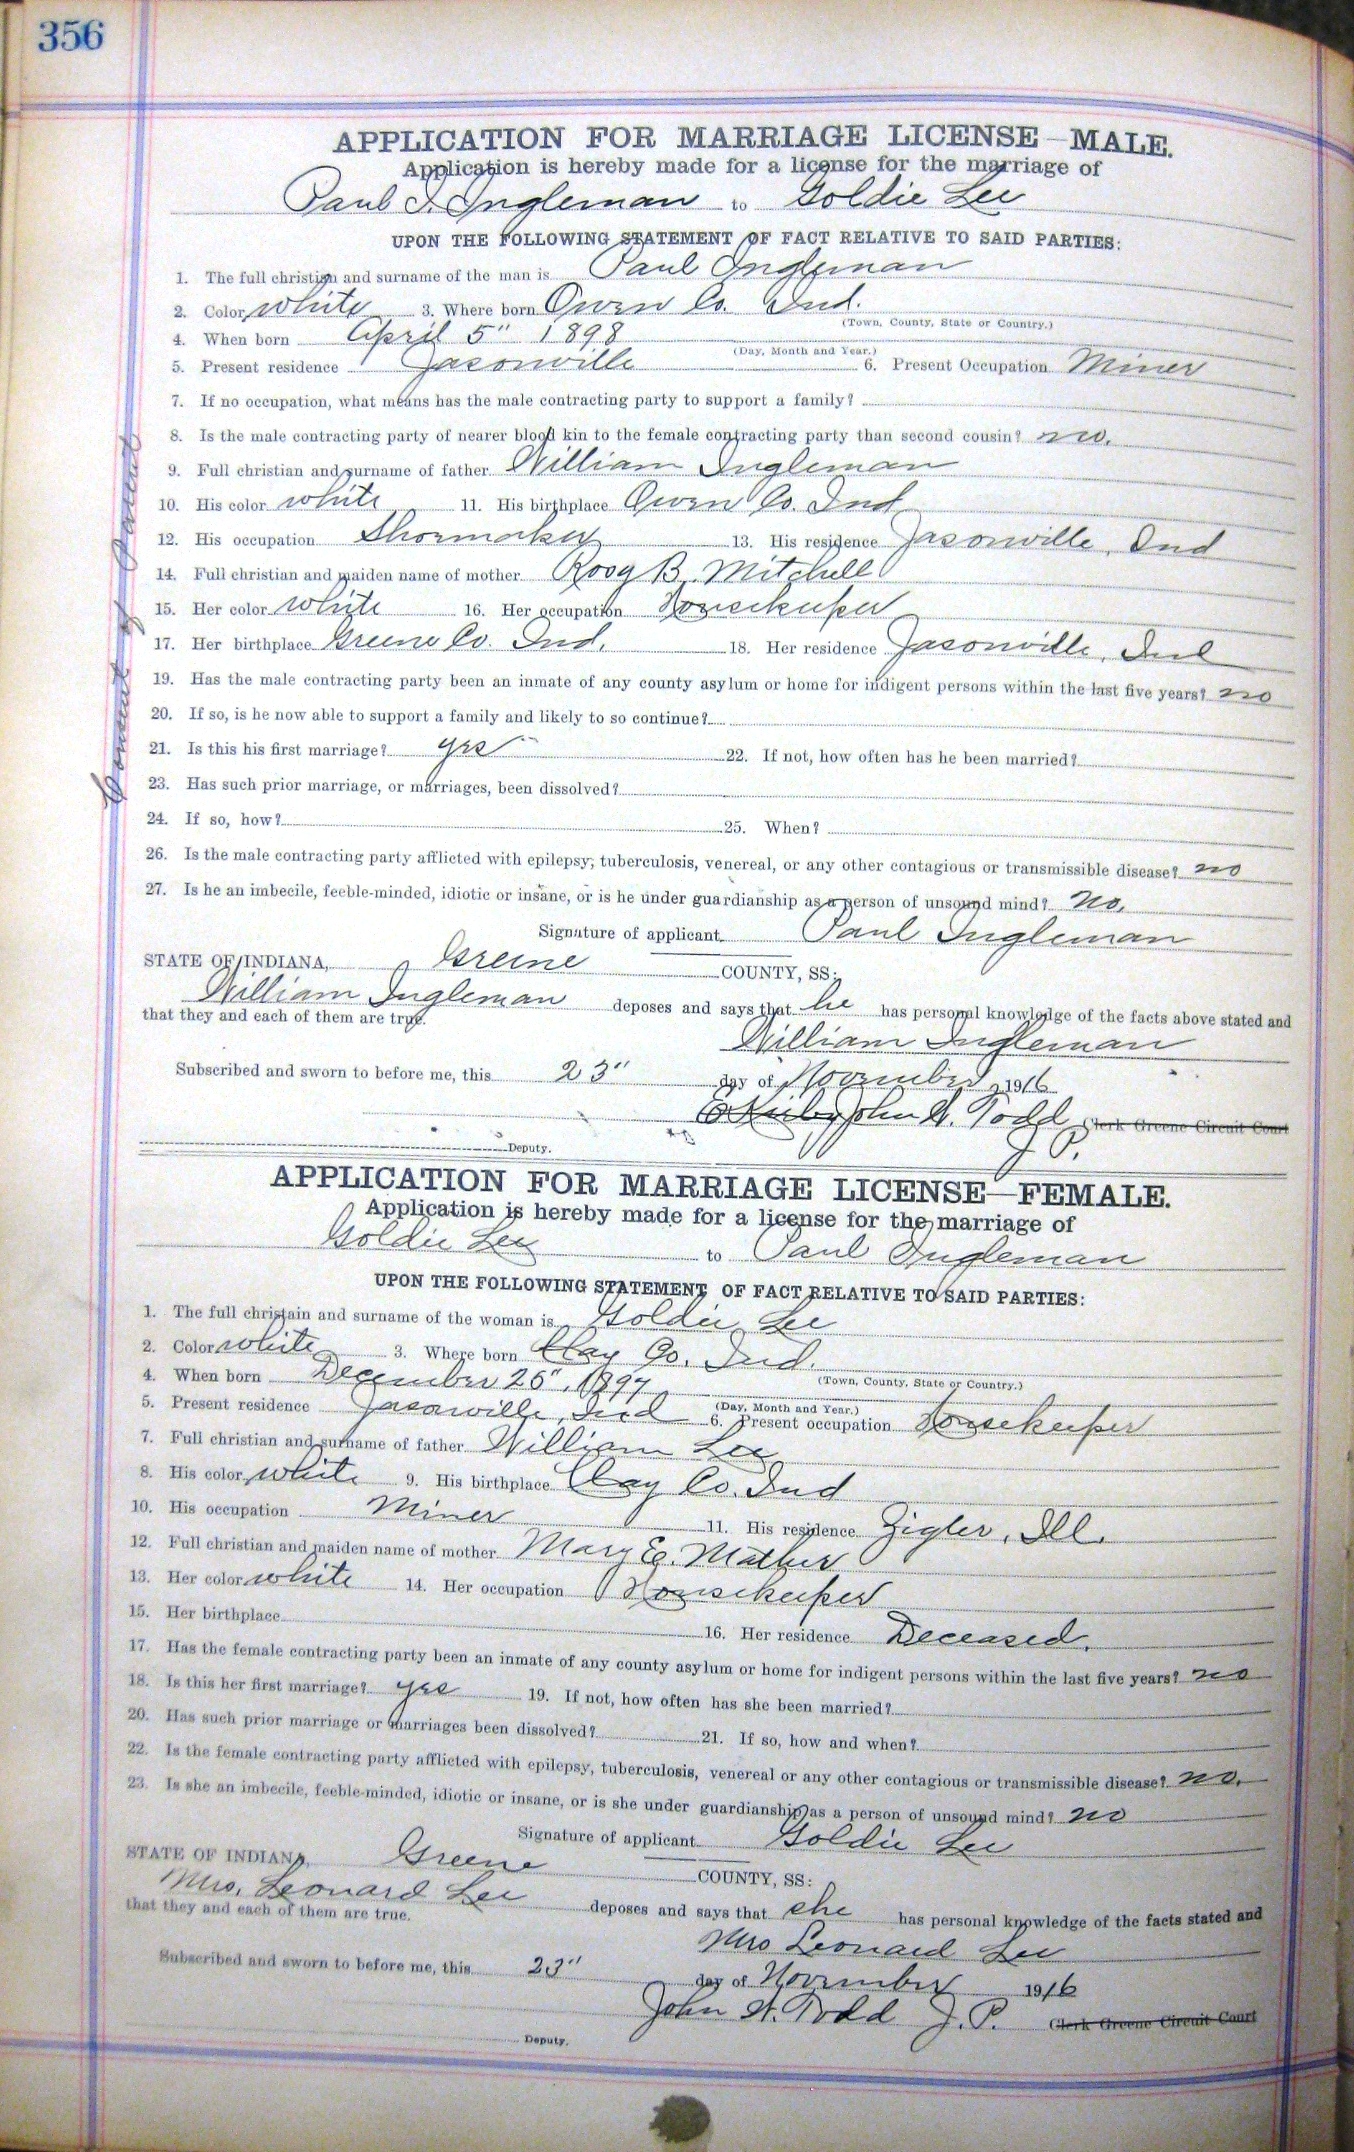 356
APPLICATION FOR MARRIAGE LICENSE—MALE.
Application is hereby made for a license for the marriage of
Paul I. Ingleman to Goldie Lee
UPON THE FOLLOWING STATEMENT OF FACT RELATIVE TO SAID PARTIES:
1. The full christian and surname of the man is Paul Ingleman
2. Color white 3. Where born Owen Co. Ind.
(Town, County, State or Country.)
4. When born April 5" 1898
(Day, Month and Year.)
5. Present residence Jasonville 6. Present Occupation Miner
7. If no occupation, what means has the male contracting party to support a family?
8. Is the male contracting party of nearer blood kin to the female contracting party than second cousin? no.
9. Full christian and surname of father William Ingleman
10. His color white 11. His birthplace Owen Co. Ind
12. His occupation Shoemaker 13. His residence Jasonville, Ind
14. Full christian and maiden name of mother Rosy B. Mitchell
15. Her color white 16. Her occupation Housekeeper
17. Her birthplace Greene Co. Ind. 18. Her residence Jasonville, Ind
19. Has the male contracting party been an inmate of any county asylum or home for indigent persons within the last five years? no
20. If so, is he now able to support a family and likely to so continue?
21. Is this his first marriage? yes 22. If not, how often has he been married?
23. Has such prior marriage, or marriages, been dissolved?
24. If so, how? 25. When?
26. Is the male contracting party afflicted with epilepsy, tuberculosis, venereal, or any other contagious or transmissible disease? no
27. Is he an imbecile, feeble-minded, idiotic or insane, or is he under guardianship as a person of unsound mind? no.
Signature of applicant Paul Ingleman
STATE OF INDIANA, Greene COUNTY, SS:
William Ingleman deposes and says that he has personal knowledge of the facts above stated and
that they and each of them are true.
William Ingleman
Subscribed and sworn to before me, this 23" day of November 1916
John W. Todd Clerk Greene Circuit Court
J P.
Deputy.
Consent of Parent
APPLICATION FOR MARRIAGE LICENSE—FEMALE.
Application is hereby made for a license for the marriage of
Goldie Lee to Paul Ingleman
UPON THE FOLLOWING STATEMENT OF FACT RELATIVE TO SAID PARTIES:
1. The full christain and surname of the woman is Goldie Lee
2. Color white 3. Where born Clay Co. Ind.
(Town, County, State or Country.)
4. When born December 25", 1897
(Day, Month and Year.)
5. Present residence Jasonville, Ind 6. Present occupation Housekeeper
7. Full christian and surname of father William Lee
8. His color white 9. His birthplace Clay Co. Ind
10. His occupation Miner 11. His residence Zigler, Ill.
12. Full christian and maiden name of mother Mary E. Mather
13. Her color white 14. Her occupation Housekeeper
15. Her birthplace 16. Her residence Deceased.
17. Has the female contracting party been an inmate of any county asylum or home for indigent persons within the last five years? no
18. Is this her first marriage? yes 19. If not, how often has she been married?
20. Has such prior marriage or marriages been dissolved? 21. If so, how and when?
22. Is the female contracting party afflicted with epilepsy, tuberculosis, venereal or any other contagious or transmissible disease? no.
23. Is she an imbecile, feeble-minded, idiotic or insane, or is she under guardianship as a person of unsound mind? no
Signature of applicant Goldie Lee
STATE OF INDIANA, Greene COUNTY, SS:
Mrs. Leonard Lee deposes and says that she has personal knowledge of the facts stated and
that they and each of them are true.
Mrs Leonard Lee
Subscribed and sworn to before me, this 23" day of November 1916
John W. Todd J. P. Clerk Greene Circuit Court
Deputy.